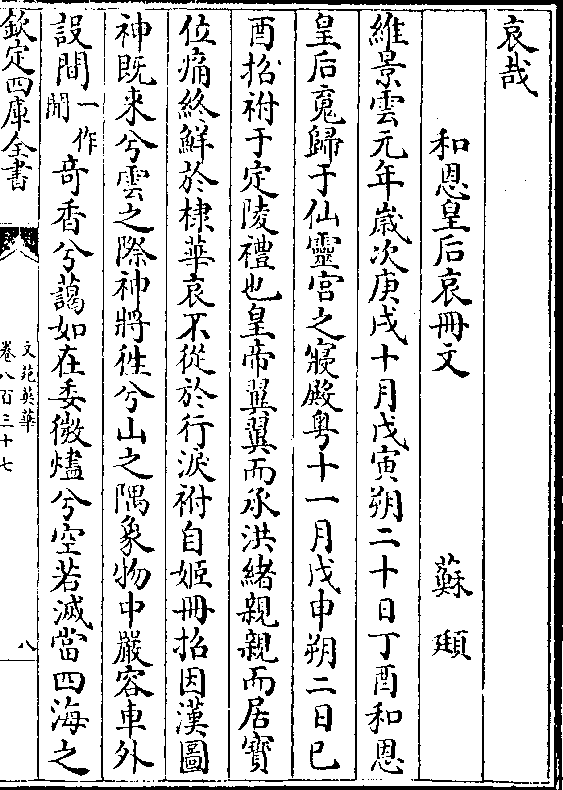 哀哉
和恩皇后哀冊文　蘇頲
維景雲元年歳次庚戌十月戊寅朔二十日丁酉和恩
皇后䰟歸于仙靈宫之寢殿粤十一月戊申朔二日已
酉招祔于定陵禮也皇帝翼翼而承洪緒親親而居寳
位痛終鮮於棣華哀不從於行淚祔自姬冊招因漢圖
神既来兮雲之際神將徃兮山之隅象物中嚴容車外
設間一作閒竒香兮藹如在委微燼兮空若滅當四海之
欽定四庫全書
文苑英華
卷八百三十七
八